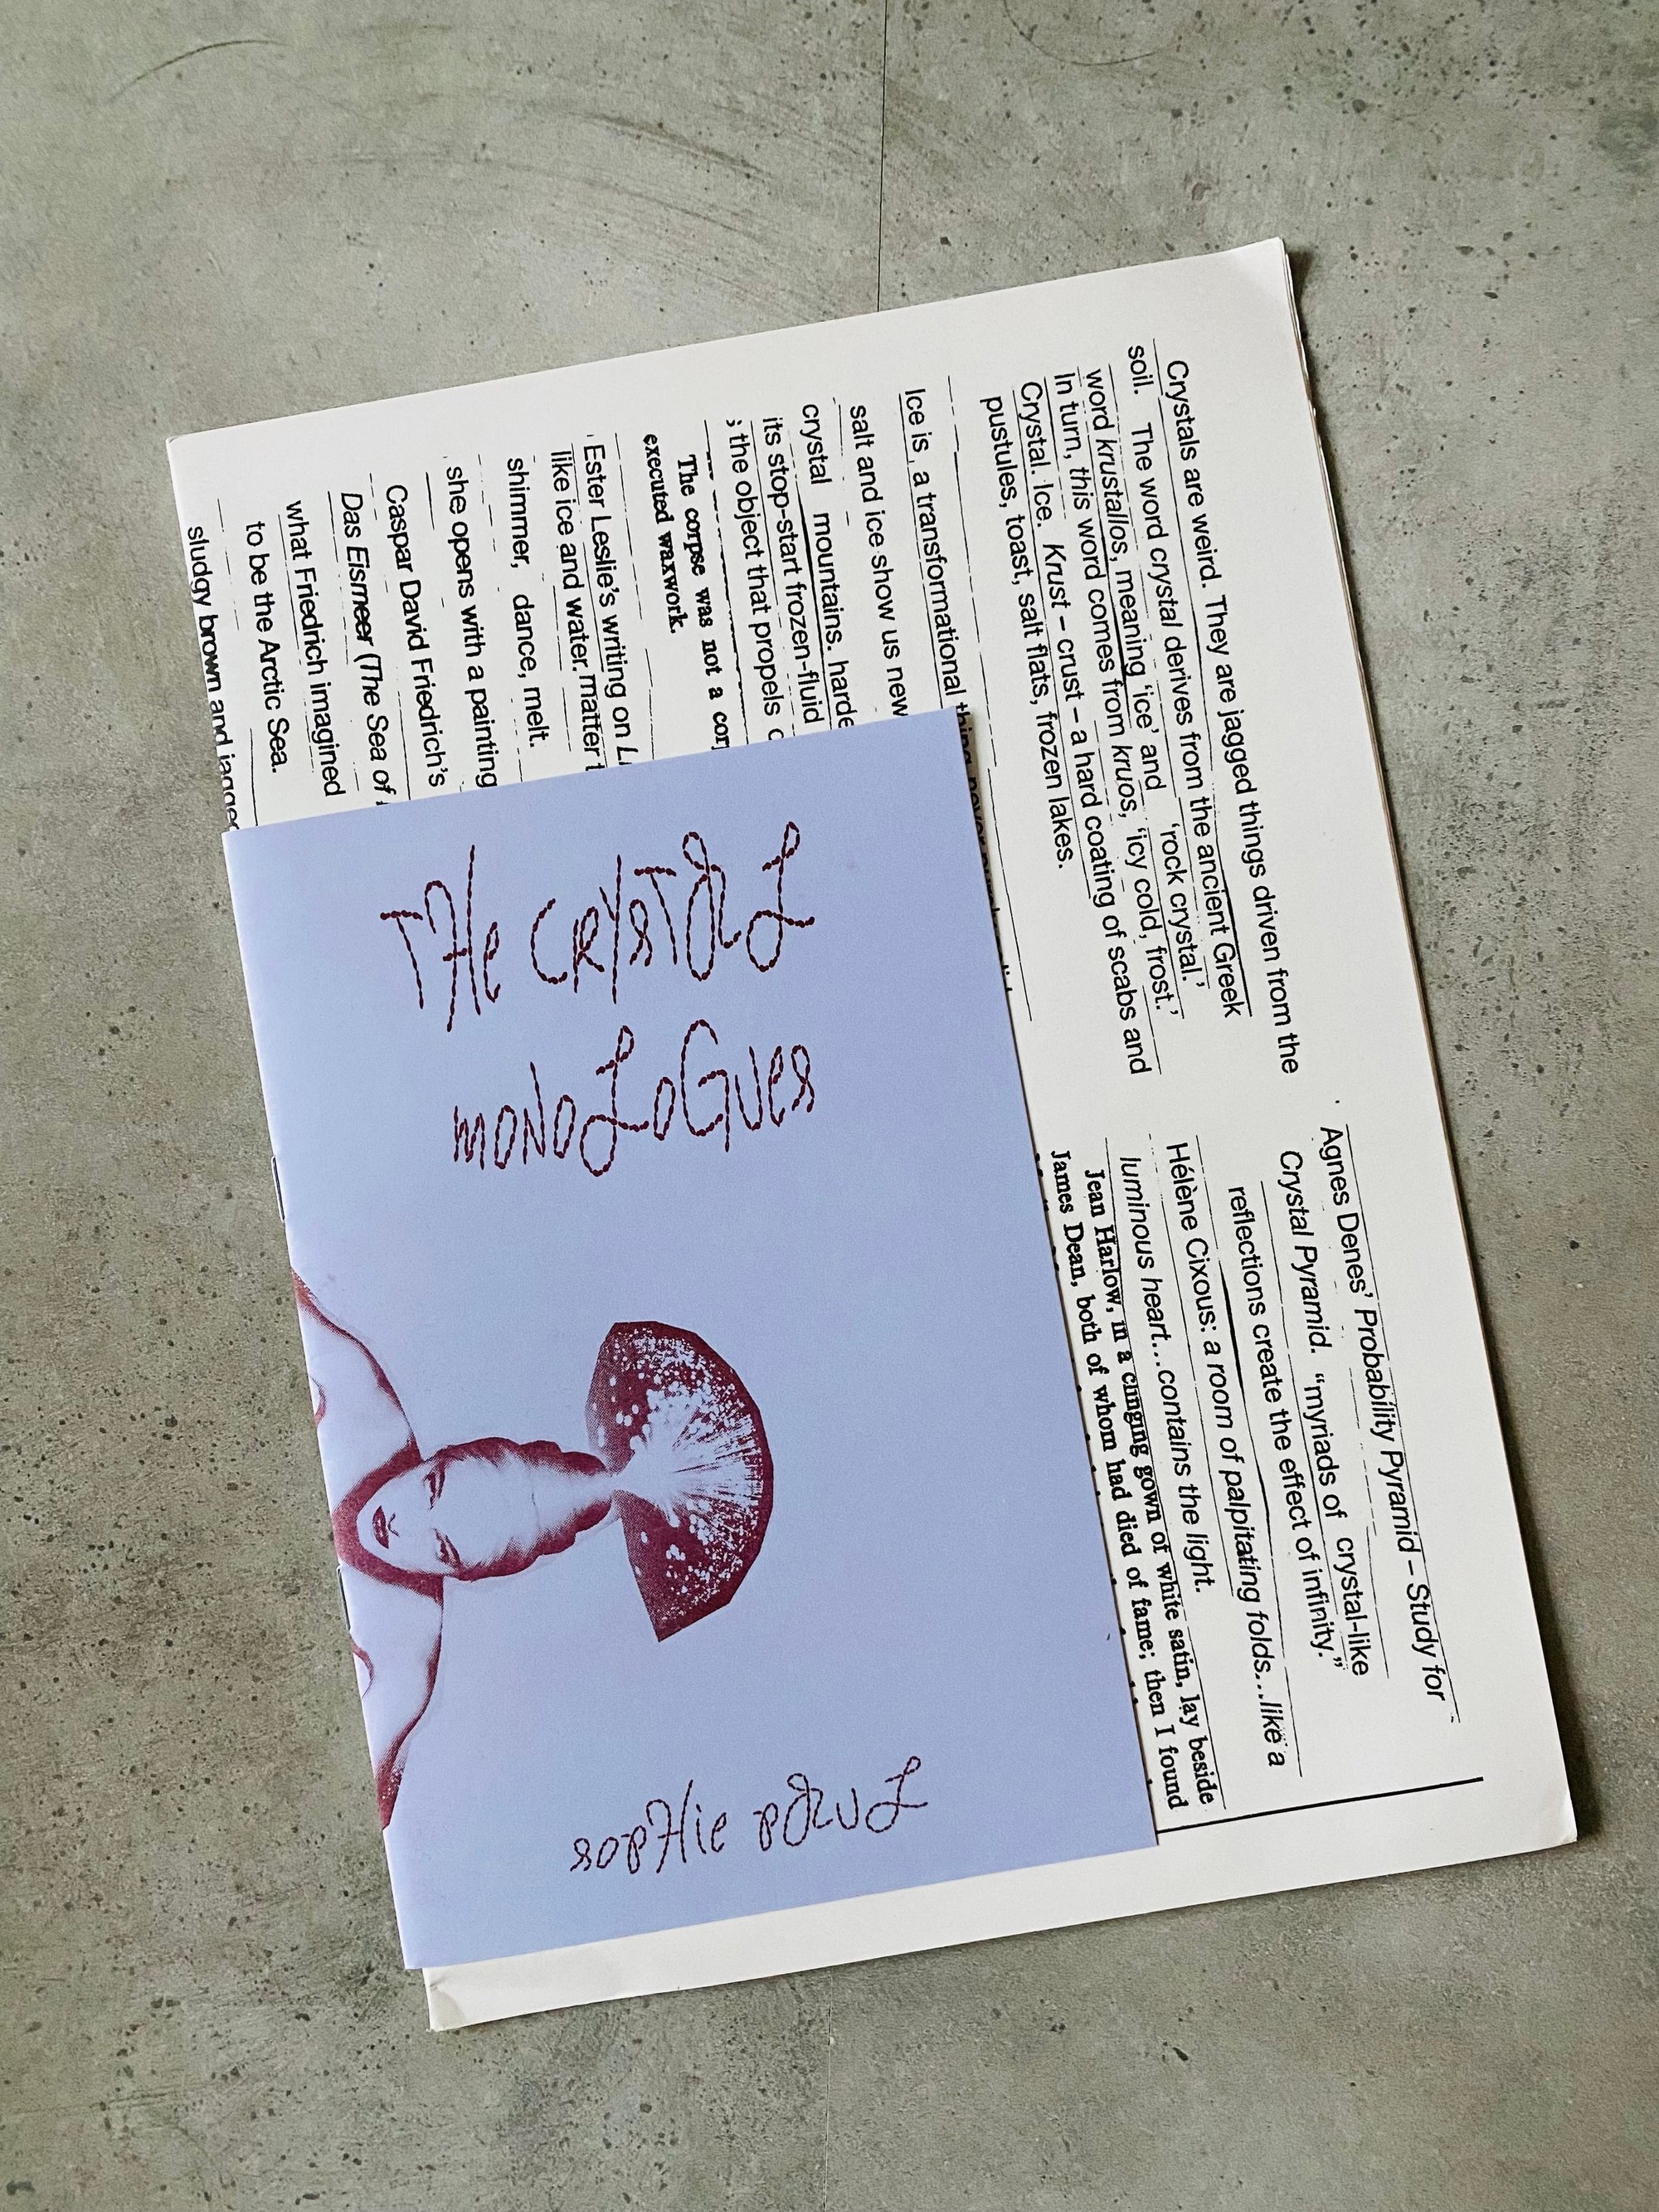 Crystals are weird. They are jagged things driven from the
soil. The word crystal derives from the ancient Greek
word krustallos, meaning ‘ice’ and ‘rock crystal.’
In turn, this word comes from kruos, ‘icy cold, frost.’
Crystal. Ice. Krust – crust – a hard coating of scabs and
pustules, toast, salt flats, frozen lakes.
Ice is a transformational
salt and ice show us new
crystal mountains. harde
its stop-start frozen-fluid
; the object that propels
The corpse was not a corp
executed waxwork.
Ester Leslie’s writing on
like ice and water. matter
shimmer, dance, melt.
she opens with a painting
Caspar David Friedrich’s
Das Eismeer (The Sea of
what Friedrich imagined
to be the Arctic Sea.
sludgy brown and jagged
Agnes Denes’ Probability Pyramid – Study for
Crystal Pyramid. “myriads of crystal-like
reflections create the effect of infinity.”
Hélène Cixous: a room of palpitating folds...like a
luminous heart...contains the light.
Jean Harlow, in a clinging gown of white satin, lay beside
James Dean, both of whom had died of fame; then I found
THe CRYSTAL
MONOLOGUES
SOPHie PAUL